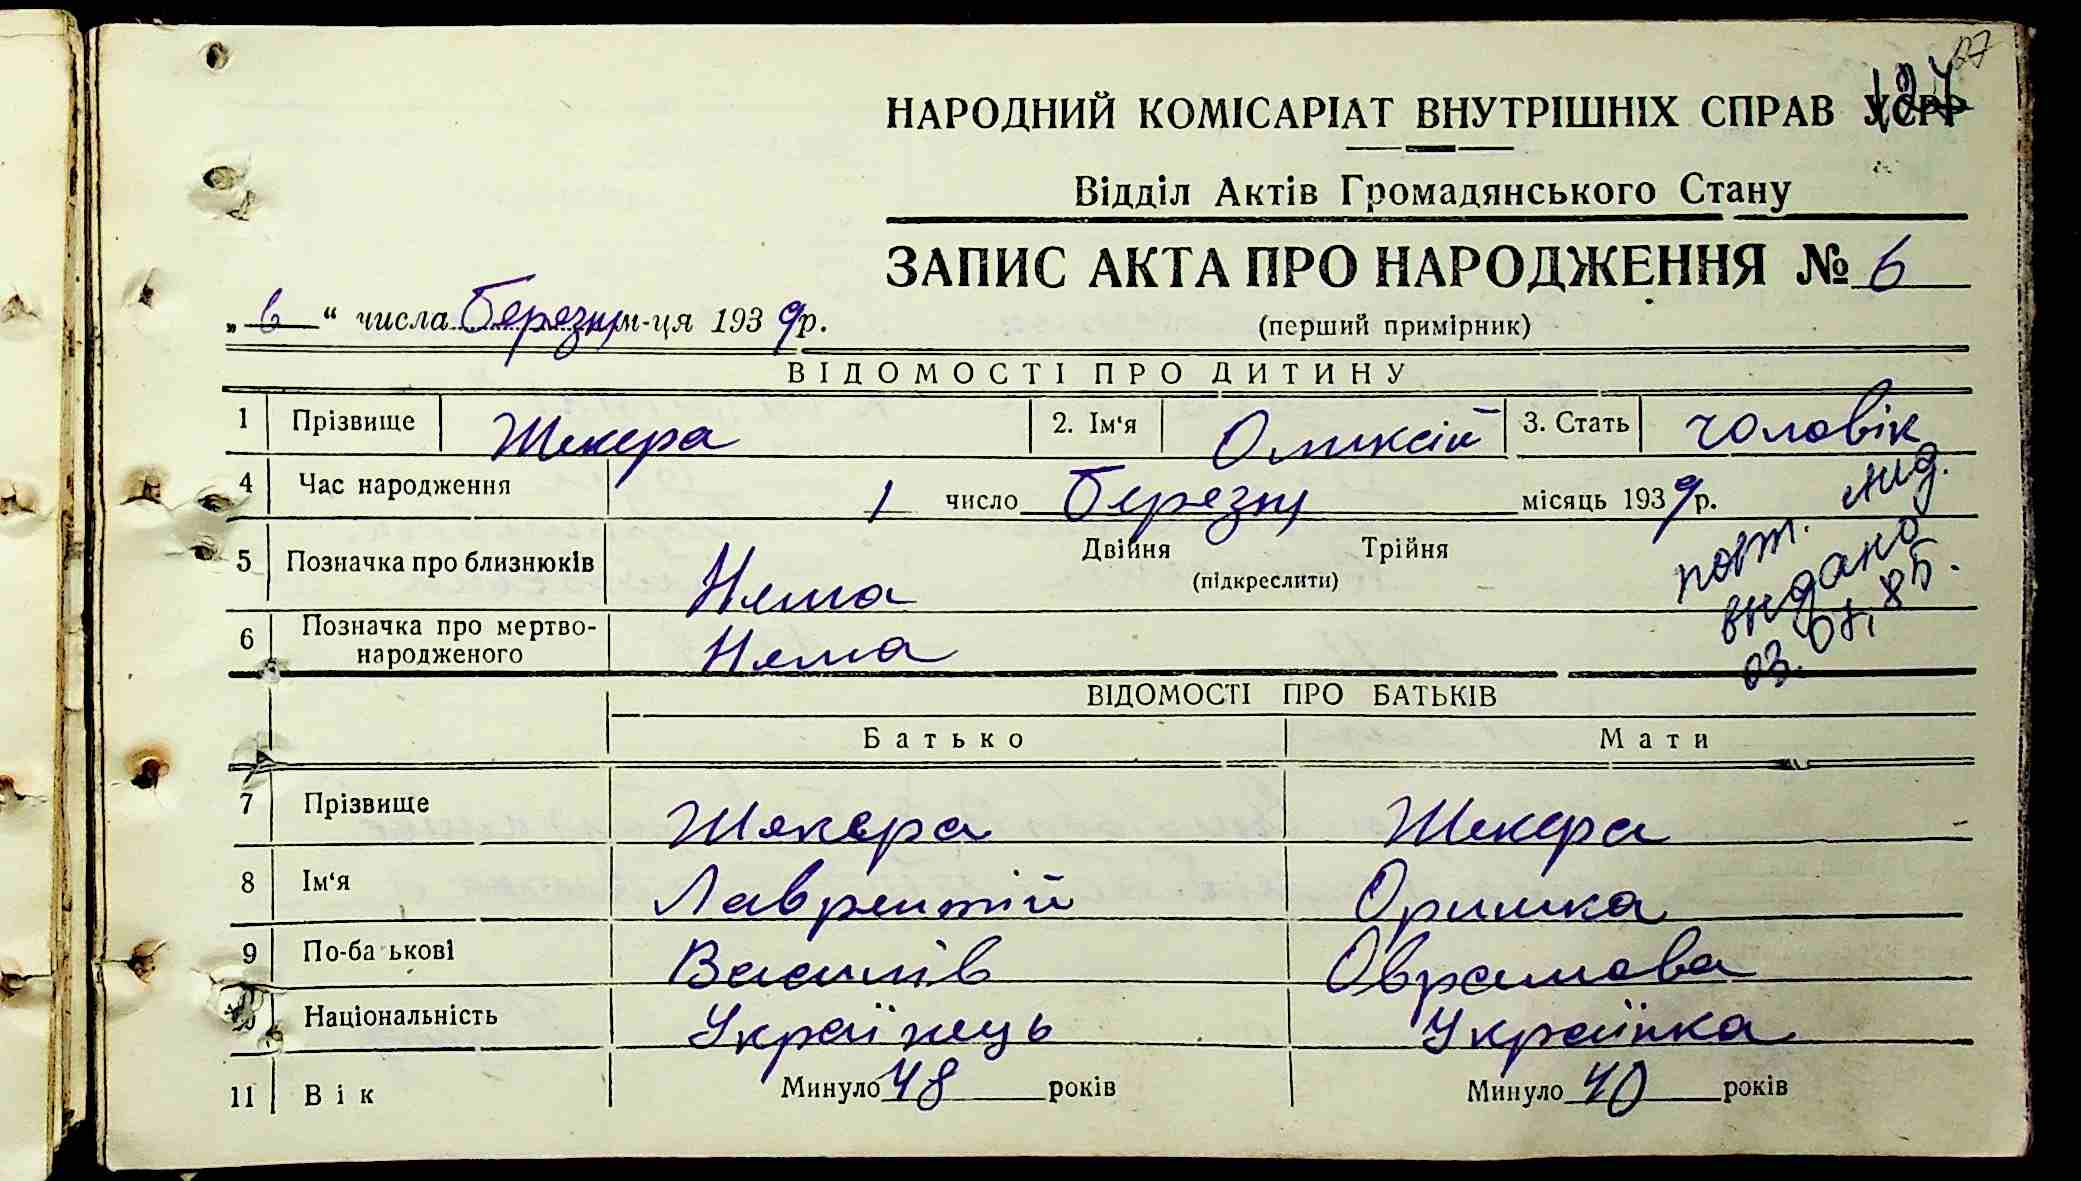 127
НАРОДНИЙ КОМІСАРІАТ ВНУТРІШНІХ СПРАВ УСРР
Відділ Актів Громадянського Стану
ЗАПИС АКТА ПРО НАРОДЖЕННЯ № 6
„ 6 “ числа березня м-ця 193 9 р.
(перший примірник)
ВІДОМОСТІ ПРО ДИТИНУ
1 Прізвище Шекера 2. Ім‘я Оликсій 3. Стать чоловік
4 Час народження 1 число березня місяць 193 9 р.
5 Позначка про близнюків Нема Двійня Трійня
(підкреслити)
повт.
видано
6 Позначка про мертво-
народженого Нема
ВІДОМОСТІ ПРО БАТЬКІВ
Батько Мати
7 Прізвище Шекера Шекера
8 Ім‘я Лаврентій Оришка
9 По-ба ькові Василів Оврамова
10 Національність Українець Українка
11 Вік Минуло 48 років Минуло 40 років